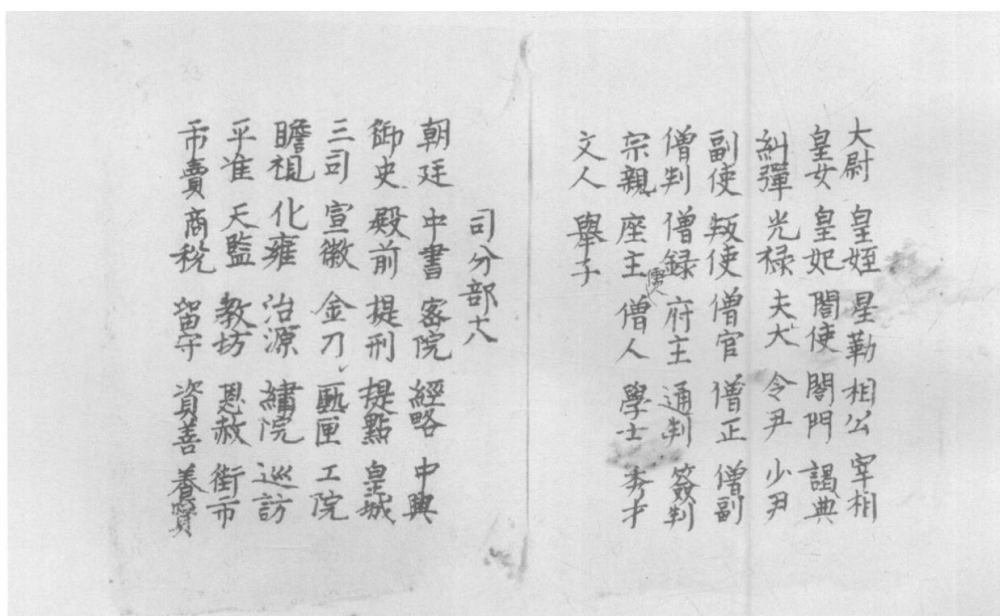 大尉 皇姪 星勒 相公 宰相
皇女 皇妃 閤使 閤門 謁典
糾彈 光禄 夫大 令尹 少尹
副使 叛使 僧官 僧正 僧副
僧判 僧録 府主 通判 簽判
宗親 座主 僧人 學士 秀才
文人 舉子
司分部十八
朝廷 中書 密院 經略 中興
御史 殿前 提刑 提點 皇城
三司 宣徽 金刀 匭匣 工院
瞻視 化雍 治源 繡院 巡訪
平准 天監 教坊 恩赦 街市
市賣 商税 留守 資善 養賢